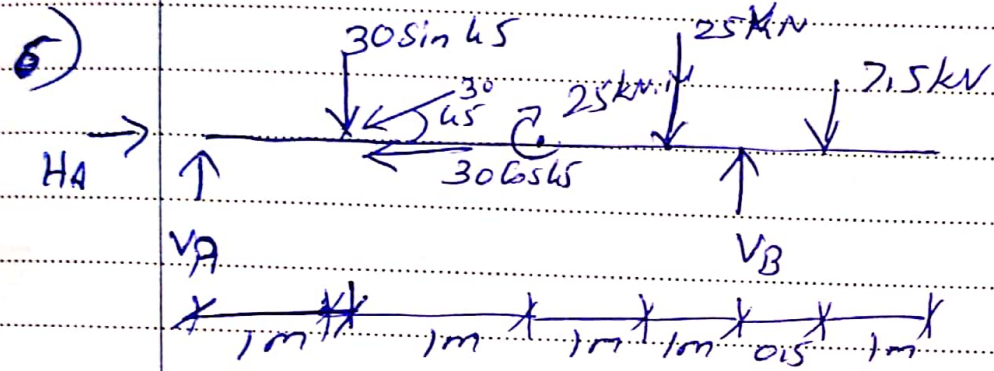 6)
30 Sin 45
25 kN
30
45
25 kN.m
7.5 kN
HA
30 Cos 45
VA
VB
1m 1m 1m 1m 0.5 1m